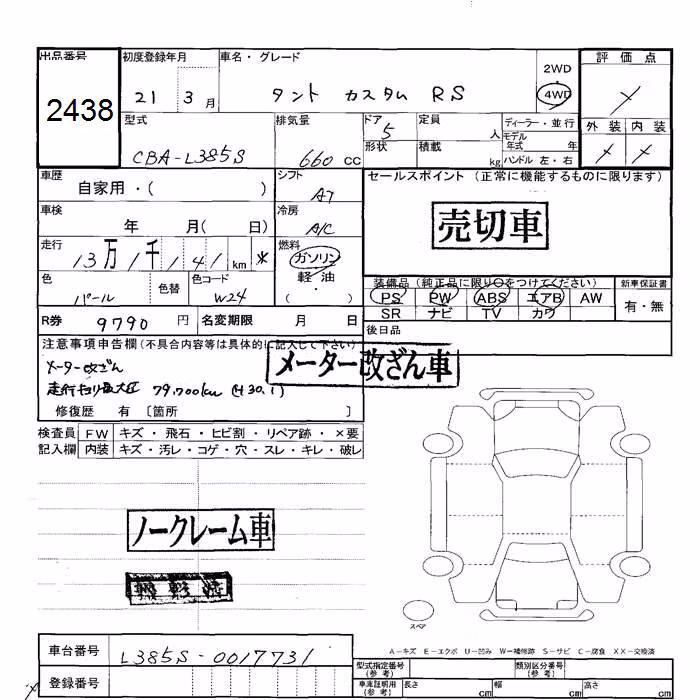 出品番号 初度登録年月 車名・グレード 評価点
2438
21 3月 タント カスタム RS 2WD
4WD
型式 排気量 ドア 定員 ディーラー・並行 外装 内装
CBA-L385S 660 cc 5 人 モデル年式 年
形状 積載 kg ハンドル 左・右
車歴 シフト セールスポイント (正常に機能するものに限ります)
自家用・( ) AT
売切車
車検 冷房
年 月( 日) A/C
走行 燃料
13万 1千 141 km * ガソリン
軽油
( )
色 色替 色コード 装備品 (純正品に限り○をつけてください) 新車保証書
パール W24 PS PW ABS エアB AW 有・無
SR ナビ TV カワ
R券 9790 円 名変期限 月 日 後日品
注意事項申告欄(不具合内容等は具体的に記入して下さい)
メーター改ざん車
メーター改ざん
79,700km (H30.1)
修復歴 有 〔箇所 〕
検査員 FW キズ・飛石・ヒビ割・リペア跡・×要
記入欄 内装 キズ・汚レ・コゲ・穴・スレ・キレ・破レ
ノークレーム車
スペア
A-キズ E-エクボ U-凹み W-補修跡 S-サビ C-腐食 XX-交換済
車台番号 L385S-0017731
登録番号
型式指定番号(参考) 類別区分番号(参考)
車庫証明用(参考) 長さ cm 幅 cm 高さ cm